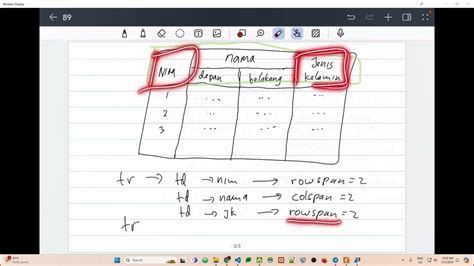 Wireless Display
89
nama
Jenis
NIM
kelamin
depan belakang
1 ... ... ...
2 ... ... ...
3 ... ... ...
tr → td → nim → rowspan=2
td → nama → colspan=2
td → jk → rowspan=2
tr
3/3